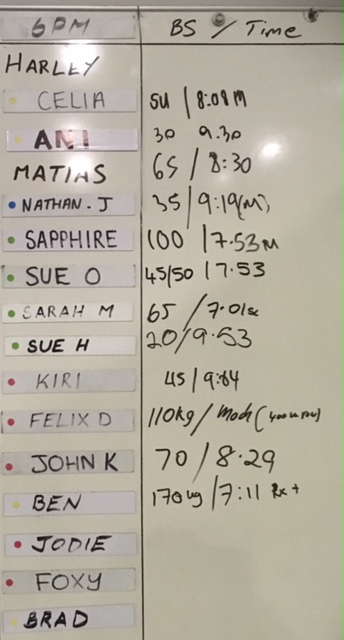 6PM BS / Time
HARLEY
CELIA 50 / 8:08 M
ANI 30 9.30
MATIAS 65 / 8:30
NATHAN. J 35 / 9:19(M)
SAPPHIRE 100 / 7.53 M
SUE O 45/50 / 7.53
SARAH M 65 / 7:01
SUE H 20/9.53
KIRI 45 / 9:04
FELIX D 110kg / Mod (400m row)
JOHN K 70 / 8.29
BEN 170 kg / 7:11 Rx +
JODIE
FOXY
BRAD